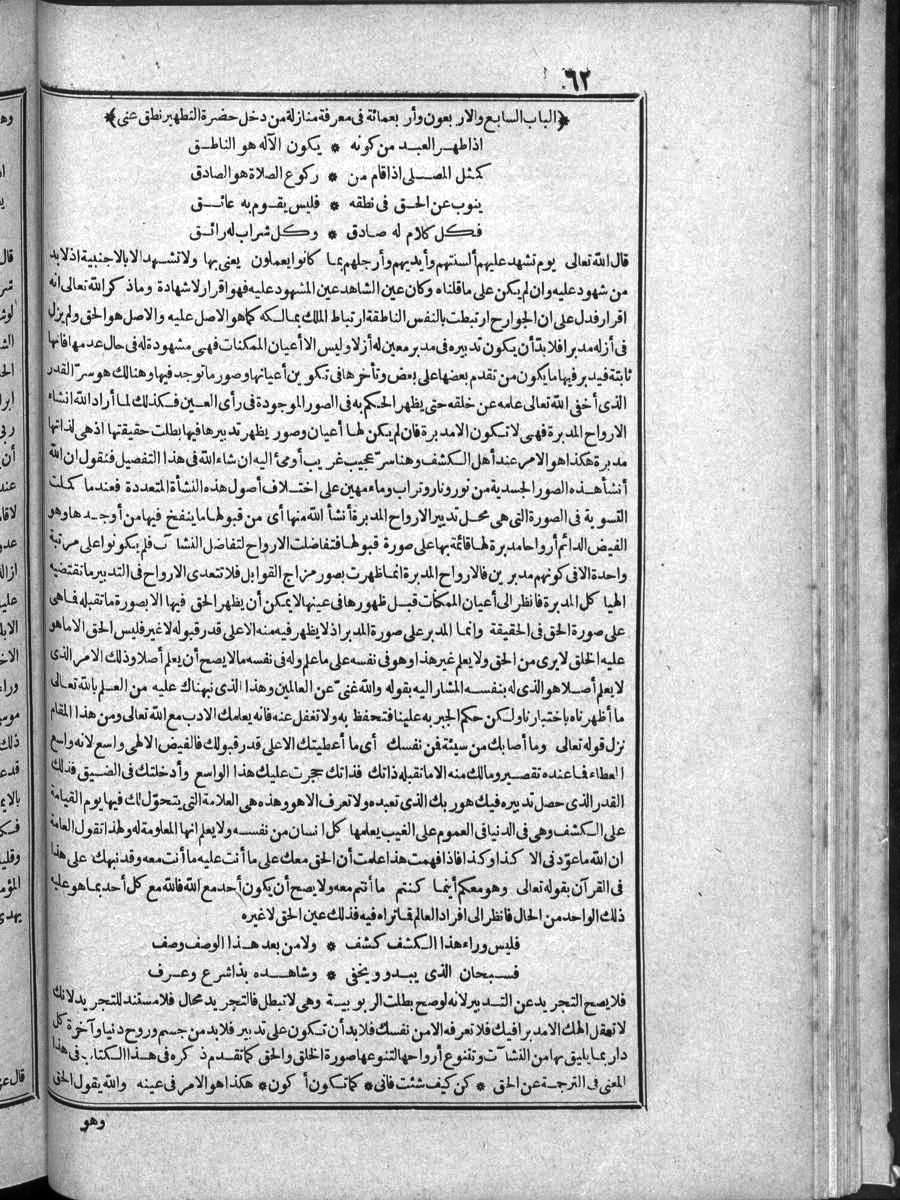 ٦٢
﴿الباب السابع والاربعون وأربعمائة فى معرفة منازلة من دخل حضرة التطهير نطق عنى﴾
اذا طهر العبد من كونه * يكون الآله هو الناطق
كمثل المصلى اذا قام من * ركوع الصلاة هو الصادق
ينوب عن الحق فى نطقه * فليس يقوم به عائق
فكل كلام له صادق * وكل شراب له رائق
قال الله تعالى يوم تشهد عليهم ألسنتهم وأيديهم وأرجلهم بما كانوا يعملون يعنى بها ولا تشهد الا بالاجنبية اذ لابد
من شهود عليه وان لم يكن على ما قلناه وكان عين الشاهد عين المشهود عليه فهو اقرار لا شهادة وما ذكر الله تعالى انه
اقرار فدل على ان الجوارح ارتبطت بالنفس الناطقة ارتباط الملك بمالكه كما هو الاصل عليه والاصل هو الحق ولم يزل
فى أزله مدبرا فلابد أن يكون تدبيره فى مدبر معين له أزلا وليس الا أعيان الممكنات فهى مشهودة له فى حال عدمها فانها
ثابتة فيدبر فيها ما يكون من تقدم بعضها على بعض وتأخرها فى تكوين أعيانها وصور ما توجد فيها وهنالك هو سرّ القدر
الذى أخفى الله تعالى علمه عن خلقه حتى يظهر الحكم به فى الصور الموجودة فى رأى العين فكذلك لما أراد الله انشاء
الارواح المدبرة فهى لا تكون الا مدبرة فان لم يكن لها أعيان وصور يظهر تدبيرها فيها بطلت حقيقتها اذ هى لذاتها
مدبرة هكذا هو الامر عند أهل الكشف وهنا سرّ عجيب غريب أومئ اليه ان شاء الله فى هذا التفصيل فنقول ان الله
أنشأ هذه الصور الجسدية من نور ونار وتراب وماء مهين على اختلاف أصول هذه النشأة المتعددة فعندما كملت
التسوية فى الصورة التى هى محل تدبير الارواح المدبرة أنشأ الله منها أى من قبولها ما ينفخ فيها من أوجدها وهو
الفيض الدائم أرواحا مدبرة لها قائمة بها على صورة قبولها فتفاضلت الارواح لتفاضل النشآت فلم يكونوا على مرتبة
واحدة الا فى كونهم مدبرين فالارواح المدبرة انما ظهرت بصور مزاج القوابل فلا تتعدى الارواح فى التدبير ما تقتضيه
الهياكل المدبرة فانظر الى أعيان الممكنات قبل ظهورها فى عينها لا يمكن أن يظهر الحق فيها الا بصورة ما تقبله فما هى
على صورة الحق فى الحقيقة وانما المدبر على صورة المدبر اذ لا يظهر فيه منه الا على قدر قبوله لا غير فليس الحق الا ما هو
عليه الخلق لا يرى من الحق ولا يعلم غير هذا وهو فى نفسه على ما علم وله فى نفسه ما لا يصح أن يعلم أصلا وذلك الامر الذى
لا يعلم أصلا هو الذى له بنفسه المشار اليه بقوله والله غنىّ عن العالمين وهذا الذى نبهناك عليه من العلم بالله تعالى
ما أظهرناه باختيارنا ولكن حكم الجبر به علينا فتحفظ به ولا تغفل عنه فانه يعلمك الادب مع الله تعالى ومن هذا المقام
نزل قوله تعالى وما أصابك من سيئة فمن نفسك أى ما أعطيتك الا على قدر قبولك فالفيض الالهى واسع لانه واسع
العطاء فما عنده تقصير ومالك منه الا ما تقبله ذاتك فذاتك حجرت عليك هذا الواسع وأدخلتك فى الضيق فذلك
القدر الذى حصل تدبيره فيك هو ربك الذى تعبده ولا تعرف الا هو وهذه هى العلامة التى يتحوّل لك فيها يوم القيامة
على الكشف وهى فى الدنيا فى العموم على الغيب يعلمها كل انسان من نفسه ولا يعلم انها المعلومة له ولهذا تقول العامة
ان الله ما عوّدنى الا كذا وكذا فاذا فهمت هذا علمت أن الحق معك على ما أنت عليه ما أنت معه وقد نبهك على هذا
فى القرآن بقوله تعالى وهو معكم أينما كنتم ما أنتم معه ولا يصح أن يكون أحد مع الله فالله مع كل أحد بما هو عليه
ذلك الواحد من الحال فانظر الى افراد العالم فما تراه فيه فذلك عين الحق لا غيره
فليس وراء هذا الكشف كشف * ولا من بعد هذا الوصف وصف
فسبحان الذى يبدو ويخفى * وشاهده بذا شرع وعرف
فلا يصح التجريد عن التدبير لانه لو صح بطلت الربوبية وهى لا تبطل فالتجريد محال فلا مستند للتجريد لانك
لا تعقل الهك الا مدبرا فيك فلا تعرفه الا من نفسك فلابد أن تكون على تدبير فلابد من جسم وروح دنيا وآخرة كل
دار بما يليق بها من النشآت وتتنوع أرواحها لتنوعها صورة الخلق والحق كما تقدم ذكره فى هذا الكتاب فى هذا
المعنى فى الترجمة عن الحق * كن كيف شئت فانى * كما تكون أكون * هكذا هو الامر فى عينه والله يقول الحق
وهو